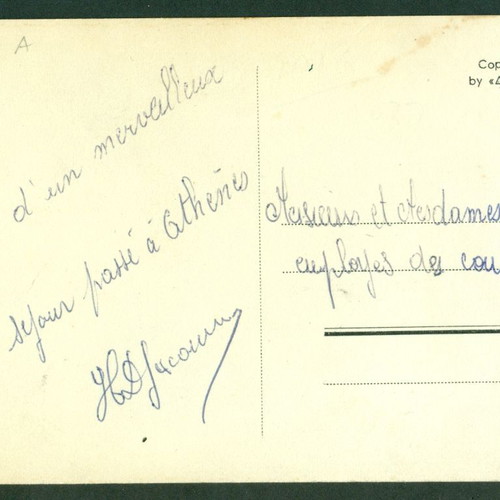 A
d'un merveilleux
séjour passé à Athènes
Cop
by «Δ
Messieurs et Mesdames
employés des cou